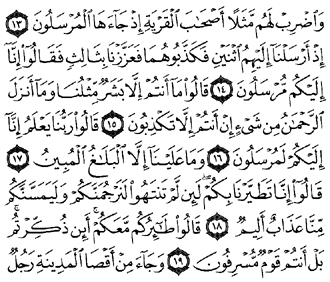 وَاضْرِبْ لَهُم مَّثَلًا أَصْحَابَ الْقَرْيَةِ إِذْ جَاءَهَا الْمُرْسَلُونَ ١٣
إِذْ أَرْسَلْنَا إِلَيْهِمُ اثْنَيْنِ فَكَذَّبُوهُمَا فَعَزَّزْنَا بِثَالِثٍ فَقَالُوا إِنَّا
إِلَيْكُم مُّرْسَلُونَ ١٤ قَالُوا مَا أَنتُمْ إِلَّا بَشَرٌ مِّثْلُنَا وَمَا أَنزَلَ
الرَّحْمَٰنُ مِن شَيْءٍ إِنْ أَنتُمْ إِلَّا تَكْذِبُونَ ١٥ قَالُوا رَبُّنَا يَعْلَمُ إِنَّا
إِلَيْكُمْ لَمُرْسَلُونَ ١٦ وَمَا عَلَيْنَا إِلَّا الْبَلَاغُ الْمُبِينُ ١٧
قَالُوا إِنَّا تَطَيَّرْنَا بِكُمْ لَئِن لَّمْ تَنتَهُوا لَنَرْجُمَنَّكُمْ وَلَيَمَسَّنَّكُم
مِّنَّا عَذَابٌ أَلِيمٌ ١٨ قَالُوا طَائِرُكُم مَّعَكُمْ أَئِن ذُكِّرْتُم
بَلْ أَنتُمْ قَوْمٌ مُّسْرِفُونَ ١٩ وَجَاءَ مِنْ أَقْصَا الْمَدِينَةِ رَجُلٌ